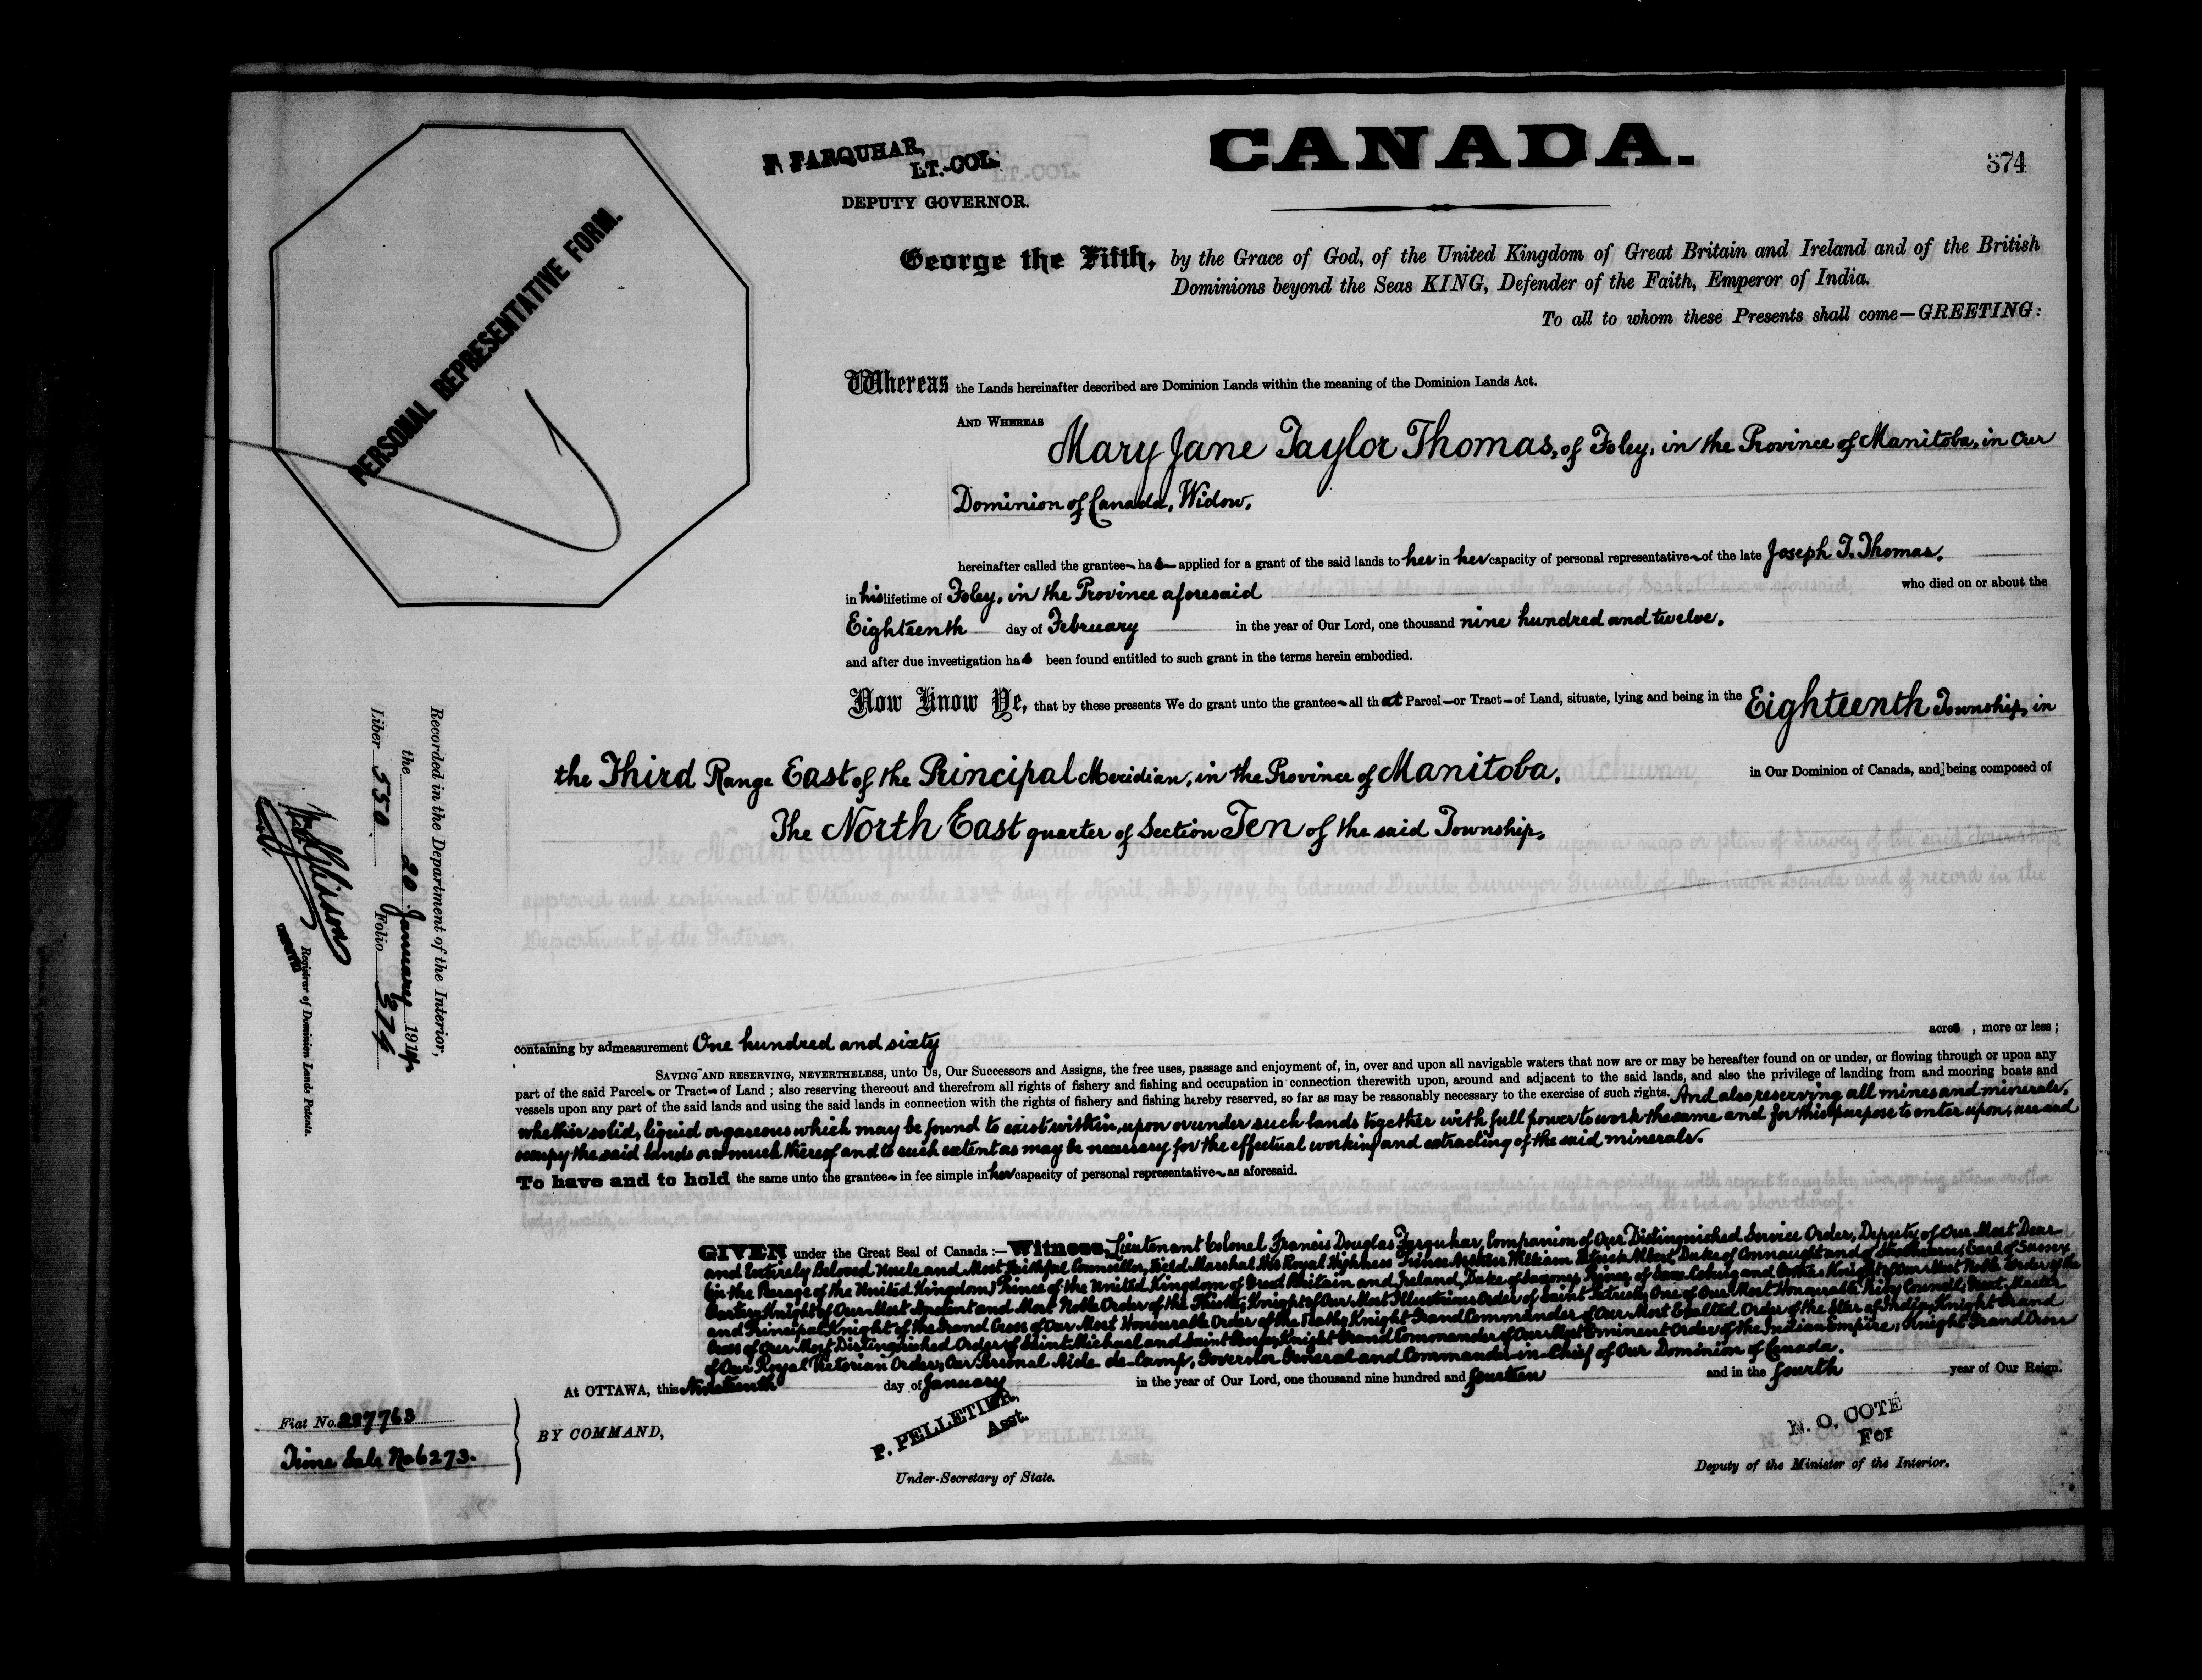 F. FARQUHAR,
LT.-COL.
DEPUTY GOVERNOR.
CANADA.
374
PERSONAL REPRESENTATIVE FORM.
George the Fifth, by the Grace of God, of the United Kingdom of Great Britain and Ireland and of the British
Dominions beyond the Seas KING, Defender of the Faith, Emperor of India.
To all to whom these Presents shall come—GREETING:
Whereas the Lands hereinafter described are Dominion Lands within the meaning of the Dominion Lands Act.
AND WHEREAS
Mary Jane Taylor Thomas, of Foley, in the Province of Manitoba, in Our
Dominion of Canada, Widow,
hereinafter called the grantee has applied for a grant of the said lands to her in her capacity of personal representative of the late Joseph T. Thomas,
in his lifetime of Foley, in the Province aforesaid who died on or about the
Eighteenth day of February in the year of Our Lord, one thousand nine hundred and twelve,
and after due investigation has been found entitled to such grant in the terms herein embodied.
Now Know Ye, that by these presents We do grant unto the grantee all that Parcel or Tract of Land, situate, lying and being in the Eighteenth Township, in
the Third Range East of the Principal Meridian, in the Province of Manitoba, in Our Dominion of Canada, and being composed of
The North East quarter of Section Ten of the said Township,
containing by admeasurement One hundred and sixty acres, more or less;
SAVING AND RESERVING, NEVERTHELESS, unto Us, Our Successors and Assigns, the free uses, passage and enjoyment of, in, over and upon all navigable waters that now are or may be hereafter found on or under, or flowing through or upon any
part of the said Parcel or Tract of Land; also reserving thereout and therefrom all rights of fishery and fishing and occupation in connection therewith upon, around and adjacent to the said lands, and also the privilege of landing from and mooring boats and
vessels upon any part of the said lands and using the said lands in connection with the rights of fishery and fishing hereby reserved, so far as may be reasonably necessary to the exercise of such rights. And also reserving all mines and minerals,
whether solid, liquid or gaseous which may be found to exist within, upon or under such lands together with full power to work the same and for this purpose to enter upon, use and
occupy the said lands or so much thereof and to such extent as may be necessary for the effectual working and extracting of the said minerals.
To have and to hold the same unto the grantee in fee simple in her capacity of personal representative as aforesaid.
GIVEN under the Great Seal of Canada:—Witness, Lieutenant Colonel Francis Douglas Farquhar, Companion of Our Distinguished Service Order, Deputy of Our Most Dear
and Entirely Beloved Uncle and Most Faithful Councillor, Field Marshal His Royal Highness Prince Arthur William Patrick Albert, Duke of Connaught and of Strathearn, Earl of Sussex
(in the Peerage of the United Kingdom) Prince of the United Kingdom of Great Britain and Ireland, Duke of Saxony, Prince of Saxe-Coburg and Gotha; Knight of Our Most Noble Order of the
Garter; Knight of Our Most Ancient and Most Noble Order of the Thistle; Knight of Our Most Illustrious Order of Saint Patrick; One of Our Most Honourable Privy Council; Great Master
and Principal Knight of the Grand Cross of Our Most Honourable Order of the Bath; Knight Grand Commander of Our Most Exalted Order of the Star of India; Knight Grand
Cross of Our Most Distinguished Order of Saint Michael and Saint George; Knight Grand Commander of Our Most Eminent Order of the Indian Empire; Knight Grand Cross
of Our Royal Victorian Order; Our Personal Aide-de-Camp, Governor General and Commander-in-Chief of Our Dominion of Canada.
At OTTAWA, this Nineteenth day of January in the year of Our Lord, one thousand nine hundred and fourteen and in the fourth year of Our Reign.
BY COMMAND,
P. PELLETIER,
Asst.
Under-Secretary of State.
N. O. COTÉ
For
Deputy of the Minister of the Interior.
Fiat No. 227763
Time Sale No 6273.
Recorded in the Department of the Interior,
the 20 January 1914
Liber 550 Folio 374
Registrar of Dominion Lands Patents.